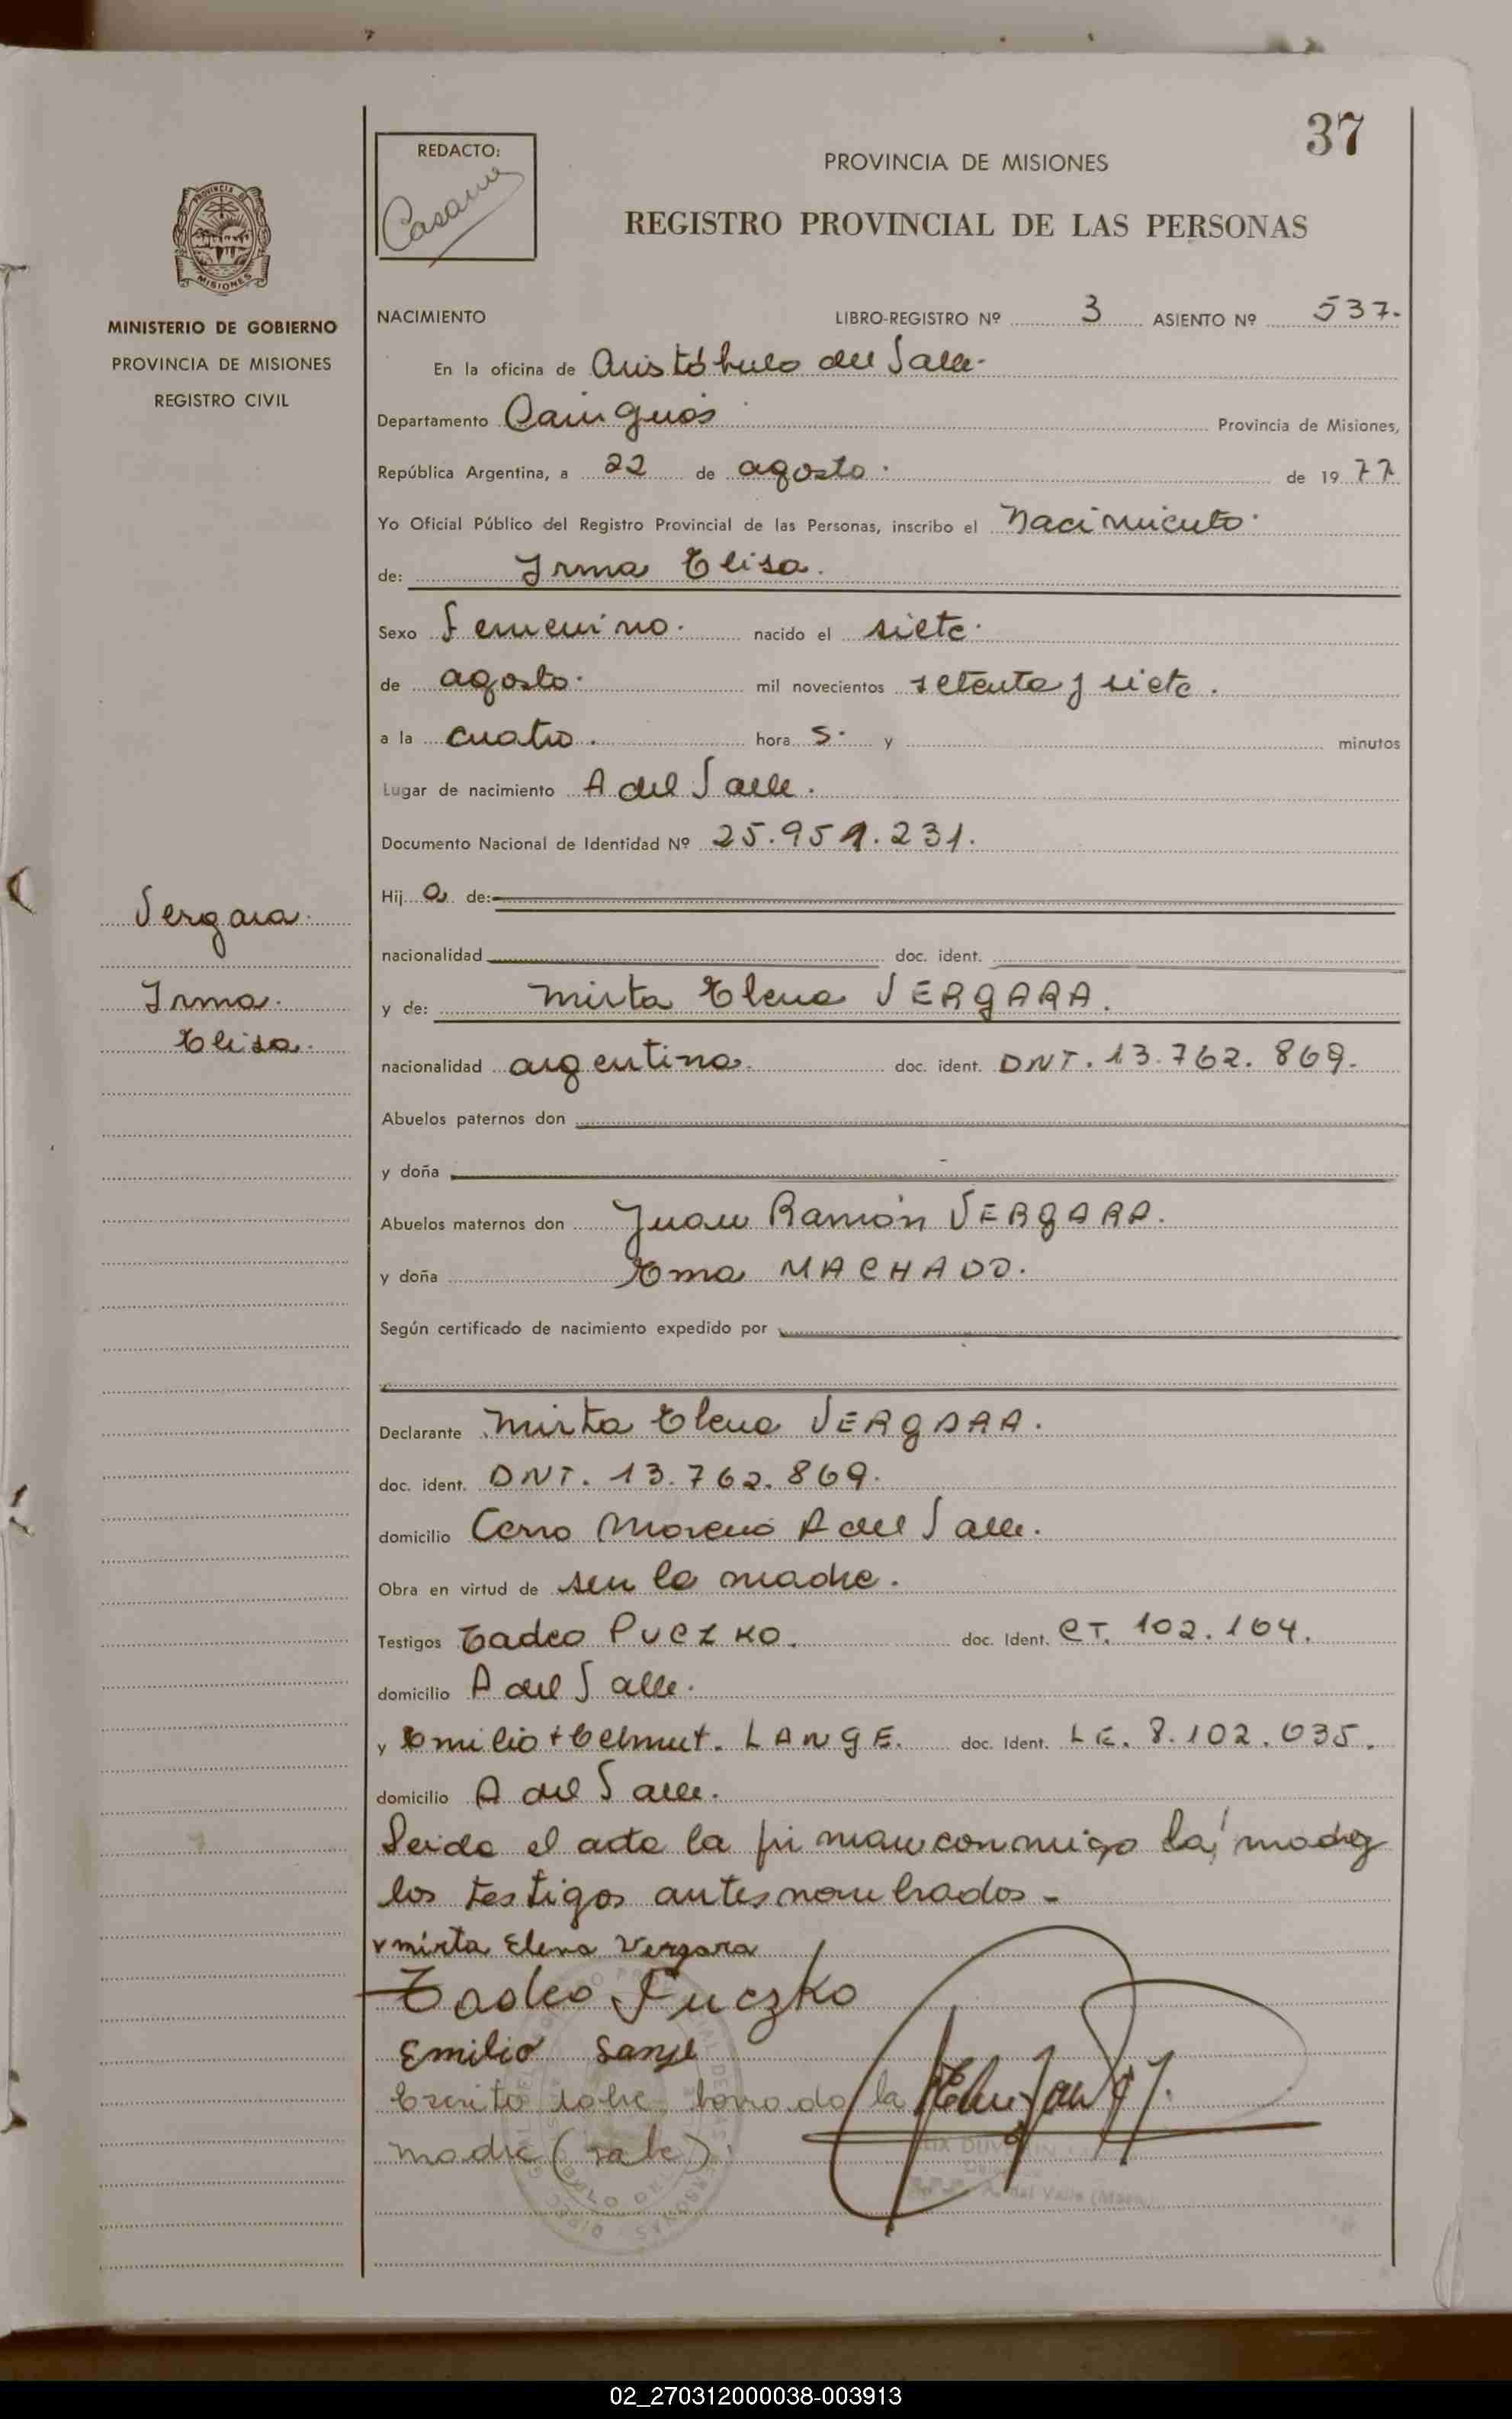 37
REDACTO:
PROVINCIA DE MISIONES
REGISTRO PROVINCIAL DE LAS PERSONAS
MINISTERIO DE GOBIERNO
PROVINCIA DE MISIONES
REGISTRO CIVIL
NACIMIENTO LIBRO-REGISTRO Nº 3 ASIENTO Nº 537.
En la oficina de Aristóbulo del Valle.
Departamento Cainguás Provincia de Misiones,
República Argentina, a 22 de agosto. de 1977
Yo Oficial Público del Registro Provincial de las Personas, inscribo el Nacimiento.
de: Irma Elisa.
Sexo Femenino. nacido el siete.
de agosto. mil novecientos setenta y siete.
a la cuatro. hora s. y minutos
Lugar de nacimiento A del Valle.
Documento Nacional de Identidad Nº 25.951.231.
Hij a de:
Vergara.
Irma.
Elisa.
nacionalidad doc. ident.
y de: Mirta Elena VERGARA.
nacionalidad argentina. doc. ident. DNI. 13.762.869.
Abuelos paternos don
y doña
Abuelos maternos don Juan Ramón VERGARA.
y doña Ema MACHADO.
Según certificado de nacimiento expedido por
Declarante Mirta Elena VERGARA.
doc. ident. DNI. 13.762.869.
domicilio Cerro Moreno A del Valle.
Obra en virtud de ser la madre.
Testigos Tadeo PUCZKO. doc. Ident. CI. 102.164.
domicilio A del Valle.
y Emilio Helmut. LANGE. doc. Ident. LE. 8.102.035.
domicilio A del Valle.
Leida el acta la firman conmigo la madre y
los testigos antes nombrados -
Mirta Elena Vergara
Tadeo Puczko
Emilio Lange
Escrito sobre borrado la
madre (vale).
02_270312000038-003913